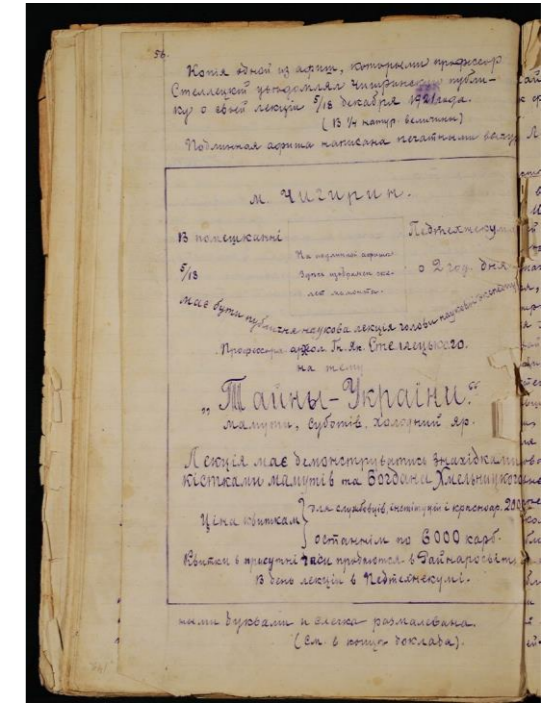 56.
Копия одной из афиш, которыми профессор
Стеллецкий уведомлял Чигиринскую публи-
ку о своей лекции 5/18 декабря 1921 года.
(В 1/4 натур. величины)
Подлинная афиша написана печатными
м. Чигирин.
В помешканні
Педтехнекуму
На подлинной афише
5/18
здесь изображен ске-
о 2 год. дня
лет мамонта.
має бути публична наукова лекция голови наукової
Професора археол. Гн. Як. Стелецького.
на тему
„Тайны-України."
мамути, Суботів, Холодний яр.
Лекція має демонструватись знахідками
кістками мамутів та Богдана Хмельницкого
для службовців, інстітуцій і красноар. 2000
Ціна квиткам
останнім по 6000 карб.
Квитки в присутні часи продаются в Райнаросвіт
В день лекціи в Педтехнекумі.
ными буквами и слегка размалевана.
(См. в конце доклада).